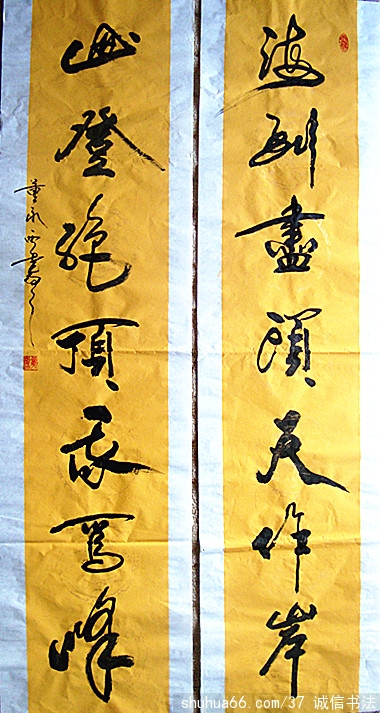 海到盡頭天作岸
山登絶頂我爲峰
董永西書
shuhua66.com/37 诚信书法